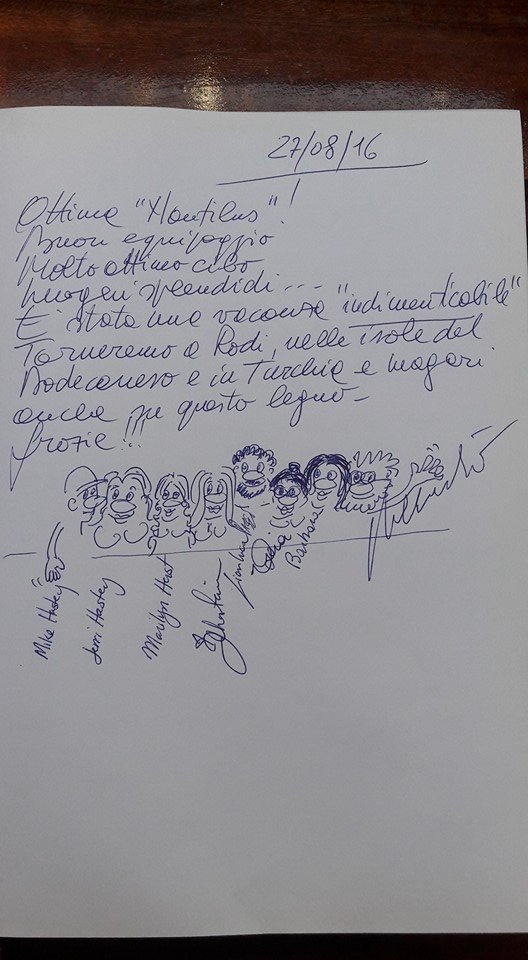 27/08/16
Ottimo "Nautilus"!
Buon equipaggio
Molto ottimo cibo
luoghi splendidi....
E' stata una vacanza "indimenticabile"
Torneremo a Rodi, nelle isole del
Dodecaneso e in Turchia e magari
anche su questo legno -
grazie!!!
Mike Hastey
Jerri Hastey
Marilyn Hest
Barbara